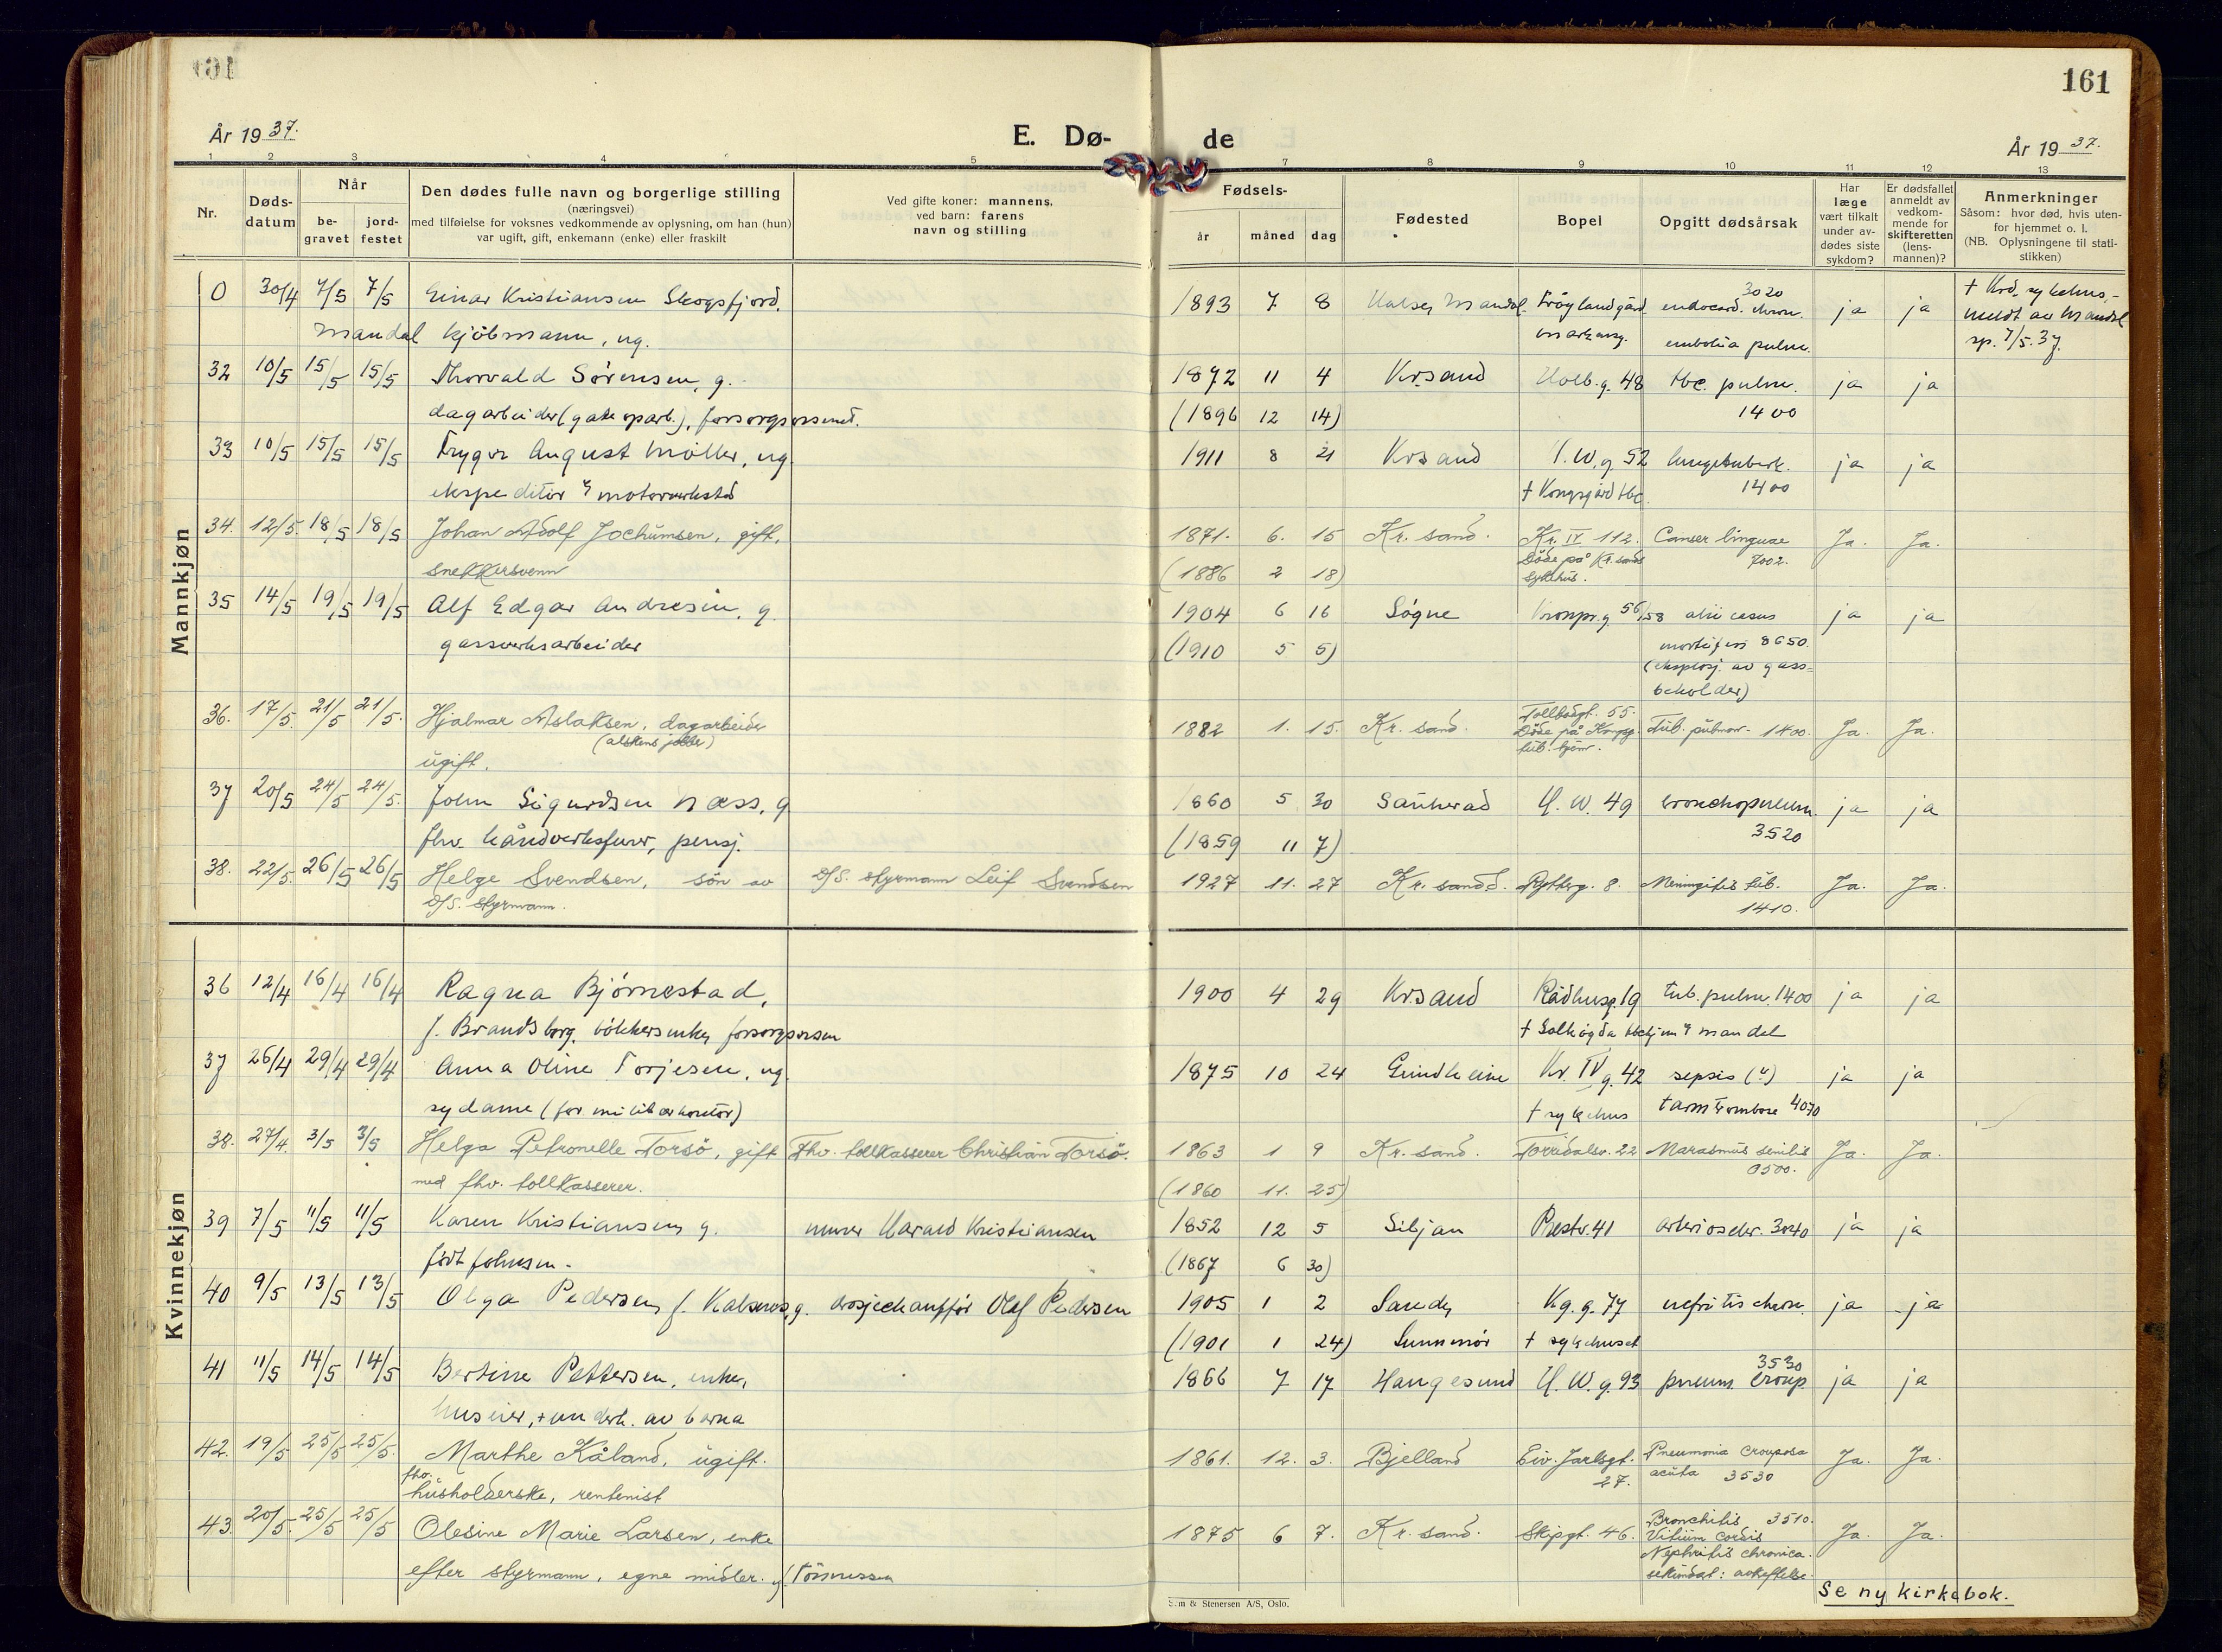 161
År 1937.
E. Dø- de
År 1937.
1 2 3 4 5 7 8 9 10 11 12 13
Nr.
Døds-
datum
Når
be-
gravet
jord-
festet
Den dødes fulle navn og borgerlige stilling
(næringsvei)
med tilføielse for voksnes vedkommende av oplysning, om han (hun)
var ugift, gift, enkemann (enke) eller fraskilt
Ved gifte koner: mannens,
ved barn: farens
navn og stilling
Fødsels-
år måned dag
Fødested
Bopel
Opgitt dødsårsak
Har
læge
vært tilkalt
under av-
dødes siste
sykdom?
Er dødsfallet
anmeldt av
vedkom-
mende for
skifteretten
(lens-
mannen)?
Anmerkninger
Såsom: hvor død, hvis uten-
for hjemmet o. l.
(NB. Oplysningene til stati-
stikken)
Mannkjøn
0 30/4 7/5 7/5 Einar Kristiansen Skogsfjord. 1893 7 8 Halse, Mandal. Frøylandgård endocard. chron. 3020 ja ja † Krs. sykehus,-
Mandal kjøbmann, ug. embolia pulm. meldt av Mandal
sp. 7/5.37.
32 10/5 15/5 15/5 Thorvald Sørensen, g. 1872 11 4 Krsand Holb.g. 48 tbc. pulm. ja ja
dagarbeider (gateoparb.), (1896 12 14) 1400
33 10/5 15/5 15/5 Trygve August Møller, ug. 1911 8 21 Krsand H.W.g. 52 lungetuberk. ja ja
ekspeditør motorverksted † Kongsgård tbc. 1400
34. 12/5. 18/5 18/5 Johan Adolf Jochumsen, gift, 1871. 6. 15 Kr. sand. Kr. IV 112. Cancer linguae Ja. Ja.
snekkersvenn (1886 2 18) Døde på Kr.sands 7002.
sykehus.
35 14/5 19/5 19/5 Alf Edgar Andresen, g. 1904 6 16 Søgne Kronpr.g. 56/58 alii casus ja ja
gassverksarbeider (1910 5 5) mortiferi 8650.
(eksplosj. av gass-
beholder)
36. 17/5. 21/5 21/5. Hjalmar Aslaksen, dagarbeider 1882 1. 15. Kr. sand. Tollbodgt. 55. Tub. pulmon. 1400. Ja. Ja.
(alskens jobber) Døde på Kongsg.
ugift. tub. hjem.
37 20/5 24/5 24/5. John Sigurdsen Næss, g 1860 5 30 Sauherad H. W. 49 bronchopneum. ja ja
fhv. håndverksfurer, pensj. (1859 11 7) 3520
38. 22/5. 26/5 26/5 Helge Svendsen, søn av D/S. styrmann Leif Svendsen 1927 11. 27 Kr. sand S. 8. Meningitis tub. Ja. Ja.
D/S. styrmann. 1410.
Kvinnekjøn
36 12/4 16/4 16/4 Ragna Bjørnestad, 1900 4 29 Krsand Rådhusg. 19 tub. pulm. 1400 ja ja
f. Brandsborg, bøkkersenke, † Solhøgda tbchjem Mandal
37 26/4 29/4 29/4 Anna Oline Torjesen, ug. 1875 10 24 Grindheim Kr. IV g. 42 sepsis ja ja
sydame † sykehus tarmtrombose 4070
38. 27/4. 3/5 3/5 Helga Petronelle Torsø, gift Fhv. tollkasserer Christian Torsø. 1863 1 9 Kr. sand. Torridalsv. 22 Marasmus senilis Ja. Ja.
med fhv. tollkasserer. (1860 11. 25) 0500.
39 7/5 11/5 11/5 Karen Kristiansen, g. murer Harald Kristiansen 1852 12 5 Siljan Prestv. 41 arterioscler. 3040 ja ja
født Johnsen. (1867 6 30)
40 9/5 13/5 13/5 Olga Pedersen, f. g. drosjechauffør Olaf Pedersen 1905 1 2 Sande, Kg. g. 77 nefritis chron. ja ja
(1901 1 24) Sunnmør † sykehuset
41 11/5 14/5 14/5 Bertine Pettersen, enke, 1866 7 17 Haugesund H. W. g. 93 pneum. croup 3530 ja ja
huseier, + underh. av barna
42. 19/5 25/5 25/5. Marthe Kåland, ugift. 1861. 12. 3. Bjelland Eiv. Jarlsgt. Pneumonia crouposa Ja. Ja.
fhv. husholderske, rentenist 27. acuta 3530
43. 20/5. 25/5 25/5 Olesine Marie Larsen, enke 1875 6 7. Kr. sand. Skipgt. 46. Bronchitis 3510. Ja. Ja.
efter styrmann, egne midler. f. Tønnessen Vitium cordis
Nephritis chronica.
sekundært: avkreftelse.
Se ny kirkebok.
Sem & Stenersen A/S, Oslo.